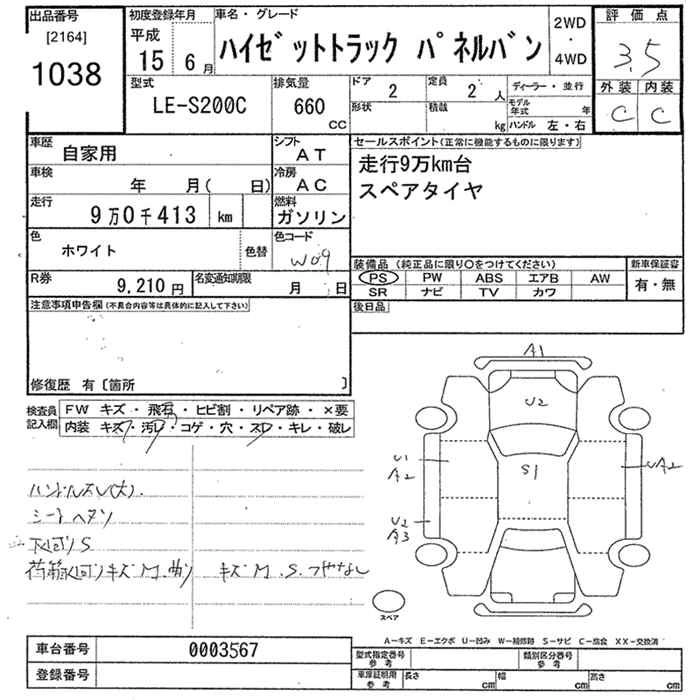 出品番号
[2164]
1038
初度登録年月
平成
15 6月
車名・グレード
ハイゼットトラック パネルバン
2WD
・
4WD
評価点
3.5
外装 内装
C C
型式
LE-S200C
排気量
660
CC
ドア 2
定員 2 人
形状
積載 kg
ディーラー・並行
モデル年式 年
ハンドル 左・右
車歴
自家用
シフト
AT
車検
年 月( 日)
冷房
AC
走行
9万0千413 km
燃料
ガソリン
色
ホワイト
色替
色コード
W09
R券
9,210円
名変通知期限
月 日
セールスポイント(正常に機能するものに限ります)
走行9万km台
スペアタイヤ
装備品(純正品に限り〇をつけてください)
PS PW ABS エアB AW
SR ナビ TV カワ
新車保証書
有・無
後日品
注意事項申告欄(不具合内容等は具体的に記入して下さい)
修復歴 有〔箇所 〕
検査員記入欄
FW キズ・飛石・ヒビ割・リペア跡・×要
内装 キズ・汚レ・コゲ・穴・スレ・キレ・破レ
ハンドルスレ(大).
シートヘタリ
下回りS
キズM.S.つやなし
A1
U2
S1
U1
A2
UA2
U2
A3
スペア
A-キズ E-エクボ U-凹み W-補修跡 S-サビ C-腐食 XX-交換済
車台番号 0003567
登録番号
型式指定番号
参考
類別区分番号
参考
車庫証明用
参考
長さ cm 幅 cm 高さ cm